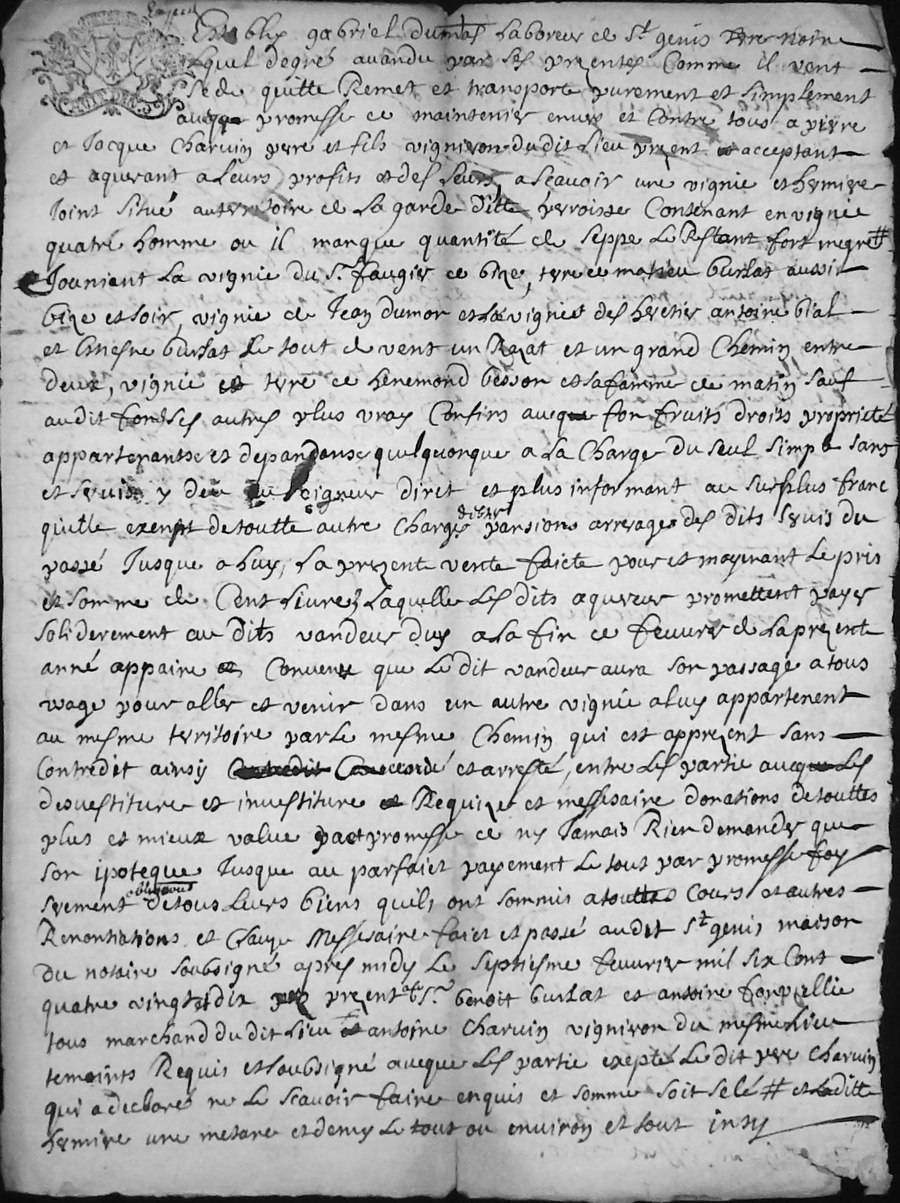 Establis gabriel dumas Laboreur de St genis terre noire
lequel de gré avandu par ses presentes Comme il vent
sede quitte Remet et transporte purement et simplement
aveque promesse de maintenier envers et Contre tous a pierre
et Jacque Charvin pere et fils vigniron du dit lieu present et acceptant
et aquerant a leurs profits et des leurs, a scavoir une vignie et hermiere
Joint situé au territoire de la garde ditte perroisse Contenant en vignie
quatre homme ou il manque quantité de seppe le Restant fort megre #
Jounient la vignie du Sr faugier de bize, terre de matieu burlat aussi
bize et soir, vignie de Jean dumor et la vignie des heretier antoine bial
et Estiesne burlat le tout de vent un Razat et un grand Chemin entre
deux, vignie et terre de heremond besson et sa famme de matin sauf
audit fond ses autres plus vrays Confins aveque son fruits droits proprieté
appartenantse et dependanse quelquonque a la Charge du seul simple sans
et servis y deu au seigneur direct et plus informant au surplus franc
quitte exempt de toutte autre Charge pansions arrerages des dits servis du
passé Jusque a huy, la prezente vente faicte pour et moyenant le pris
et somme de Cent livres laquelle les dits aquereur promettent payer
soliderement au dits vandeur duy a la fin de fevurier de la prezente
anné appaire et Convenu que le dit vandeur aura son passage a tous
wage pour aller et venir dans un autre vignie a luy appartenent
au mesme territoire par le mesme Chemin qui est apprezent sans
Contredit ainsy et arresté, entre les partie aveque les
desvestiture et investiture et Requize et nessesaire donations de touttes
plus et mieux value pact promesse de ny Jamais Rien demander que
son ipoteque Jusque au parfaict payement le tout par promesse foy
serement obligation de tous leurs biens quils ont sommis a touttes Cours et autres
Renontiations et Clause Nessesaire faict et passé audit St genis maison
du notaire soubsigné apres midy le septiesme fevurier mil six Cent
quatre vingt dix prezent Sr benoit burlat et antoine fonvielle
tous marchand du dit lieu et antoine Charvin vigniron du mesme lieu
temoints Requis et soubsigné aveque les partie exepté le dit pere Charvin
qui a declaré ne le scavoir faire enquis et somme soit selé # et laditte
hermire une metare et demy le tout ou environ et tout insy